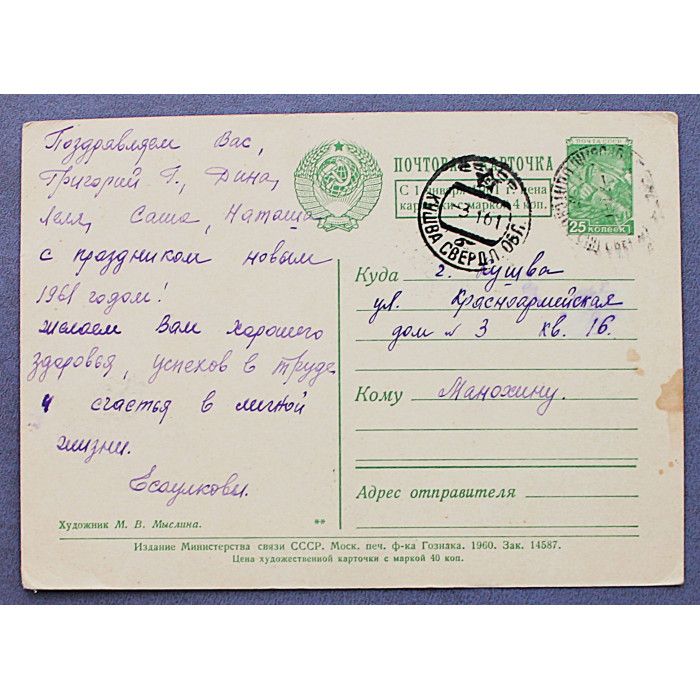 Поздравляем Вас,
Григорий Г., Дина,
Леля, Саша, Наташа
с праздником новым
1961 годом!
Желаем Вам хорошего
здоровья, успехов в труде
и счастья в личной
жизни.
Есаулковы.
Художник М. В. Мыслина.
**
ПОЧТОВАЯ КАРТОЧКА
С 1 января 1961 г. цена
карточки с маркой 4 коп.
КУШВА СВЕРДЛ. ОБЛ.
3 1 61
б
ПОЧТА СССР
25 КОПЕЕК
Куда г. Кушва
ул. Красноармейская
дом № 3 кв. 16.
Кому Манохину.
Адрес отправителя
Издание Министерства связи СССР. Моск. печ. ф-ка Гознака. 1960. Зак. 14587.
Цена художественной карточки с маркой 40 коп.